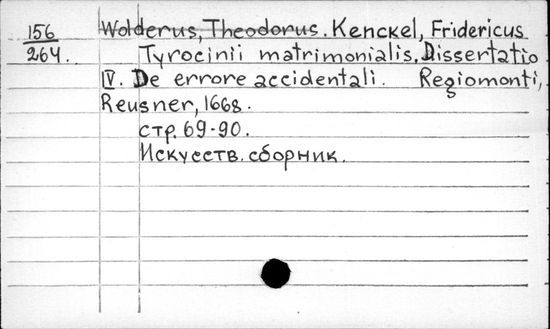 156 Wolderus, Theodorus. Kenckel, Fridericus
264. Tyrocinii matrimonialis. Dissertatio
IV. De errore accidentali. Regiomonti,
Reusner, 1668.
стр. 69-90.
Искусств. сборник.